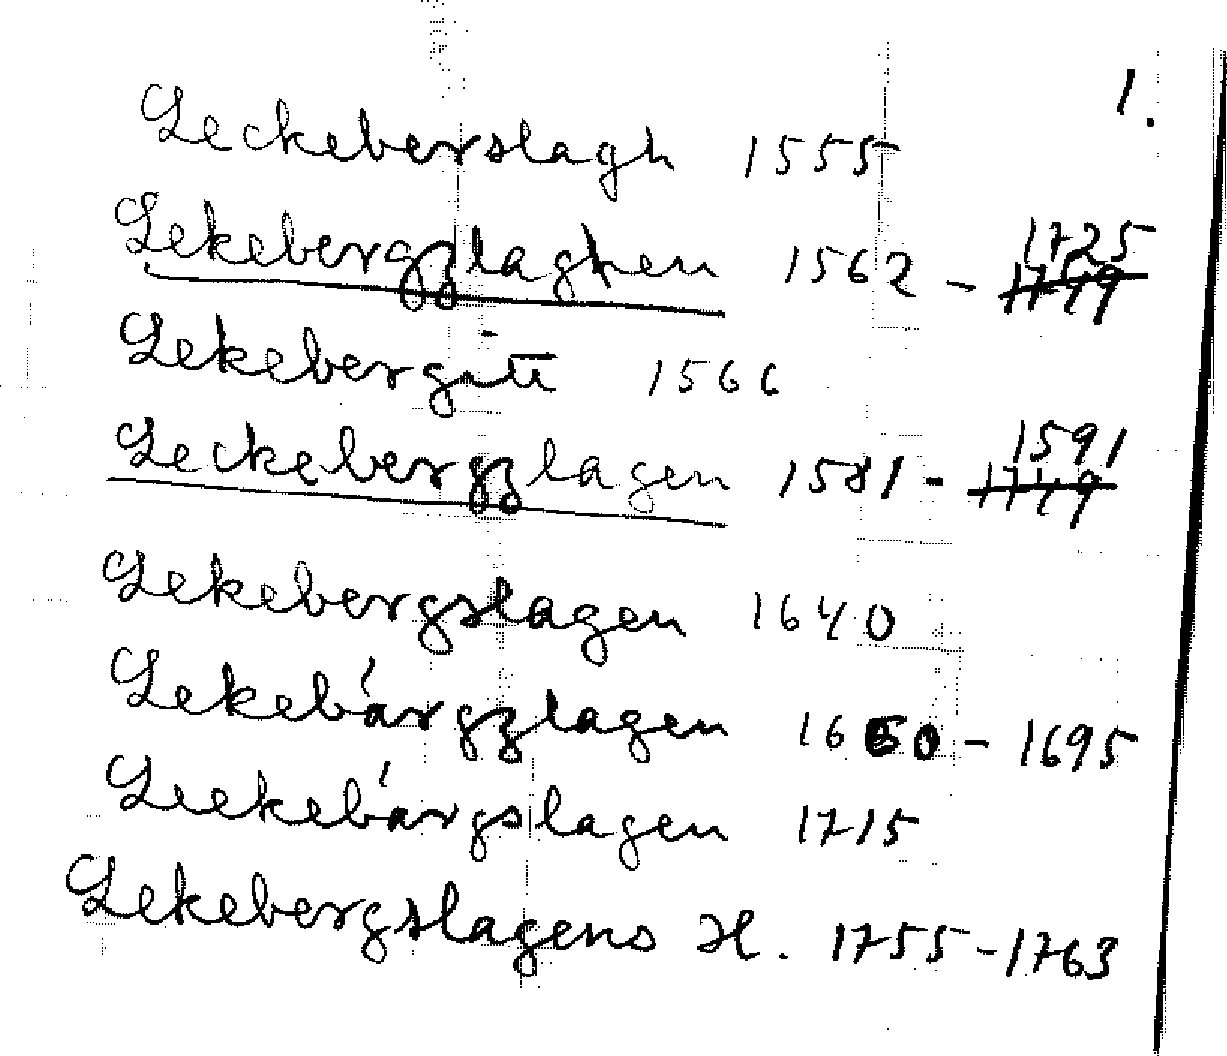 1.
Leckeberslagh 1555
Lekebergzlaghen 1562 - 1725
Lekebergit 1566
Leckebergzlagen 1581 - 1591
Lekebergslagen 1640
Lekebärgzlagen 1660 - 1695
Leekebärgslagen 1715
Lekebergslagens H. 1755-1763